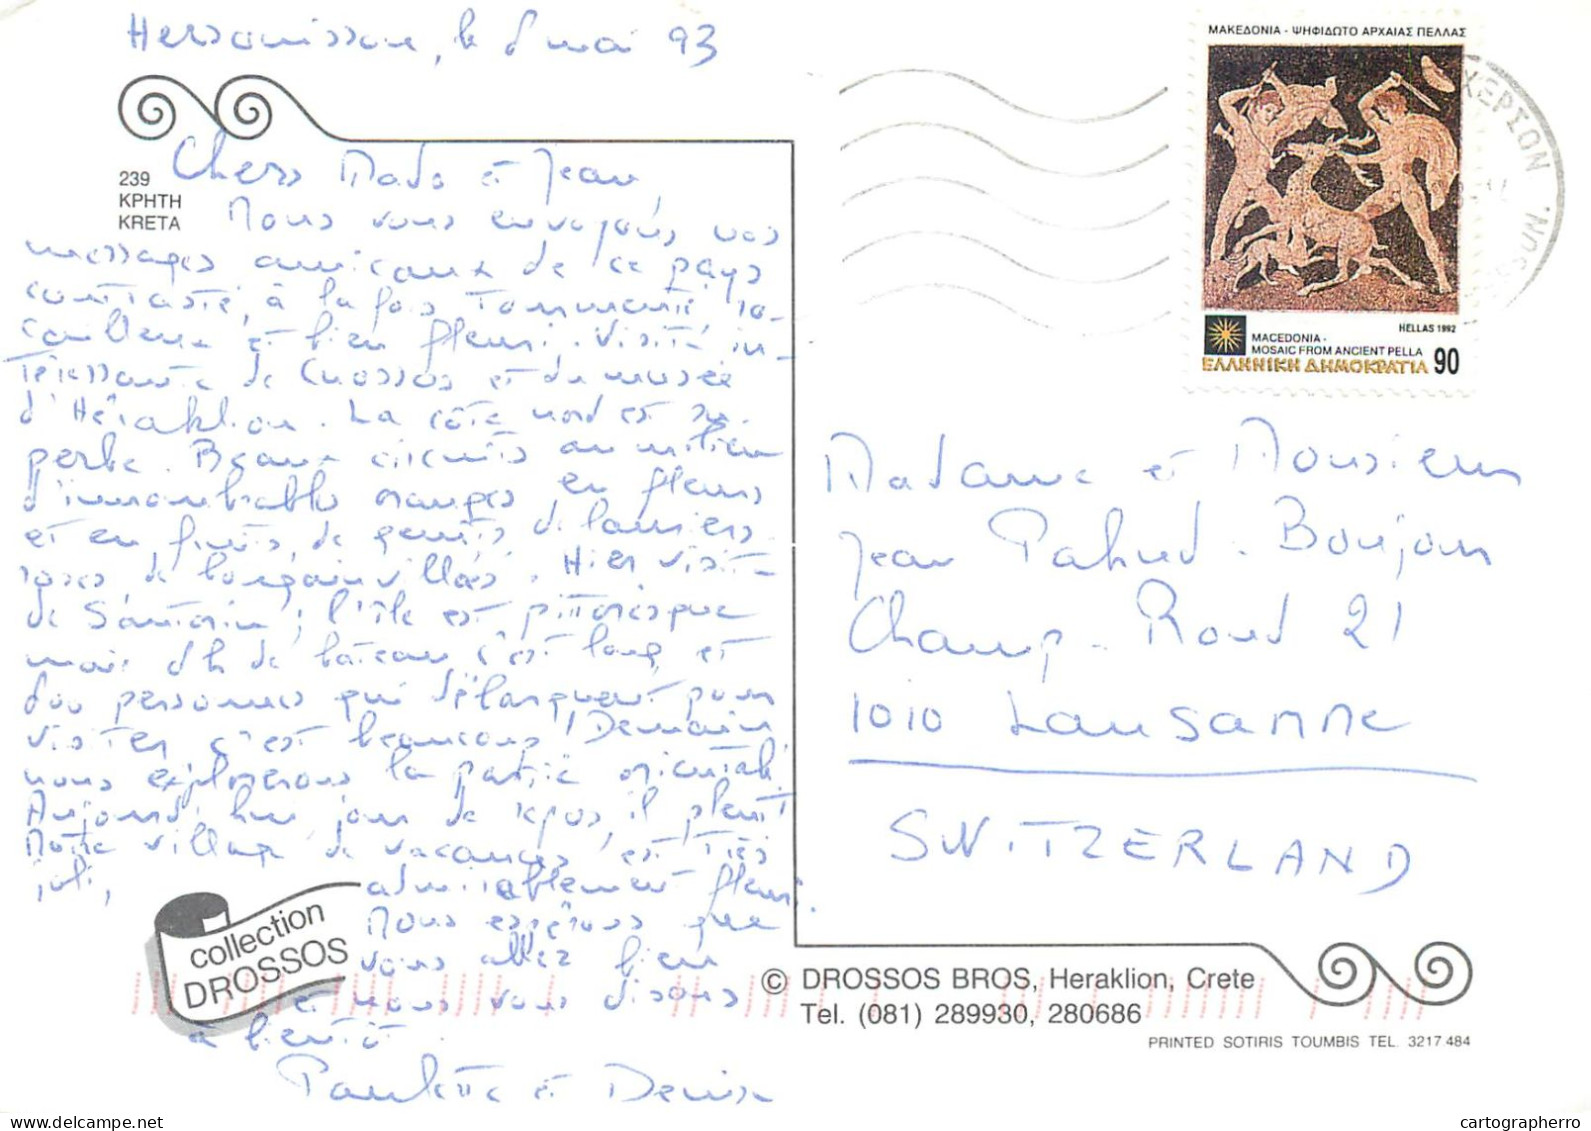 Hersonissou, le 8 mai 93
239
ΚΡΗΤΗ
KRETA
Chers Mado et Jean,
Nous vous envoyons nos
messages amicaux de ce pays
contrasté, à la fois tourmenté, ro-
cailleux et bien fleuri. Visite in-
téressante de Cnossos et du musée
d'Héraklion. La côte nord est su-
perbe. Beaux circuits au milieu
d'innombrables oranges en fleurs
et en fruits, de genêts, de lauriers
roses, de bougainvillées. Hier visite
de Santorin ; l'île est pittoresque
mais 9h de bateau c'est long et
800 personnes qui débarquent pour
visiter c'est beaucoup! Demain
nous explorerons la partie orientale.
Aujourd'hui jour de repos, il pleut
Notre village de vacances est très
joli, admirablement fleuri.
Nous espérons que
vous allez bien
et nous vous disons
à bientôt.
Paulette et Denise
collection
DROSSOS
ΜΑΚΕΔΟΝΙΑ - ΨΗΦΙΔΩΤΟ ΑΡΧΑΙΑΣ ΠΕΛΛΑΣ
HELLAS 1992
MACEDONIA -
MOSAIC FROM ANCIENT PELLA
ΕΛΛΗΝΙΚΗ ΔΗΜΟΚΡΑΤΙΑ 90
ΧΕΡΣΟΝ
Madame et Monsieur
Jean Pahud-Boujon
Champ-Rond 21
1010 Lausanne
SWITZERLAND
© DROSSOS BROS, Heraklion, Crete
Tel. (081) 289930, 280686
PRINTED SOTIRIS TOUMBIS TEL. 3217.484
cartographerro